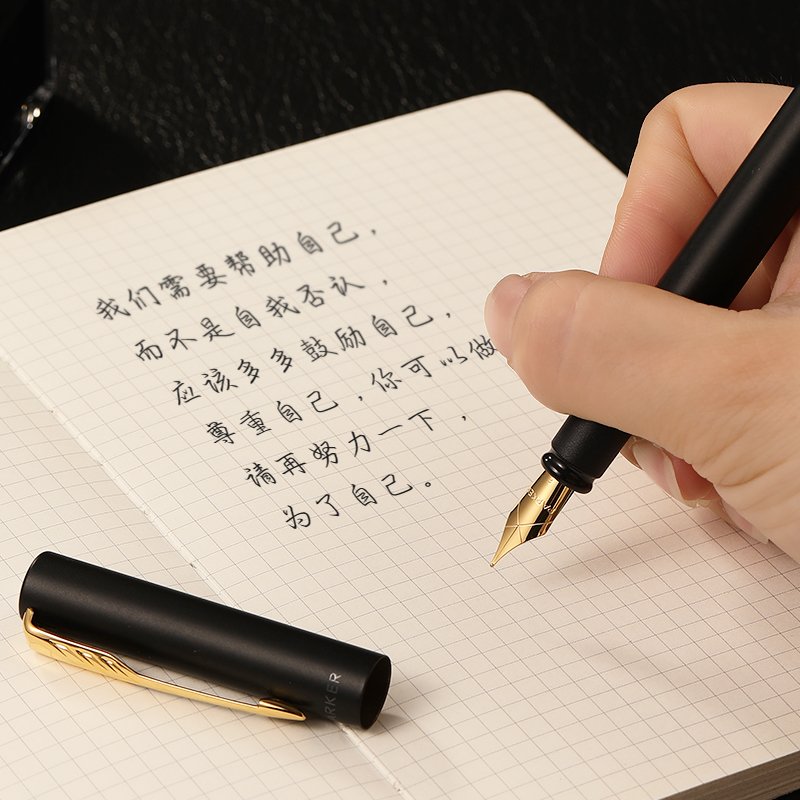 我们需要帮助自己，
而不是自我否认，
应该多多鼓励自己，
尊重自己，你可以做
请再努力一下，
为了自己。
RKER